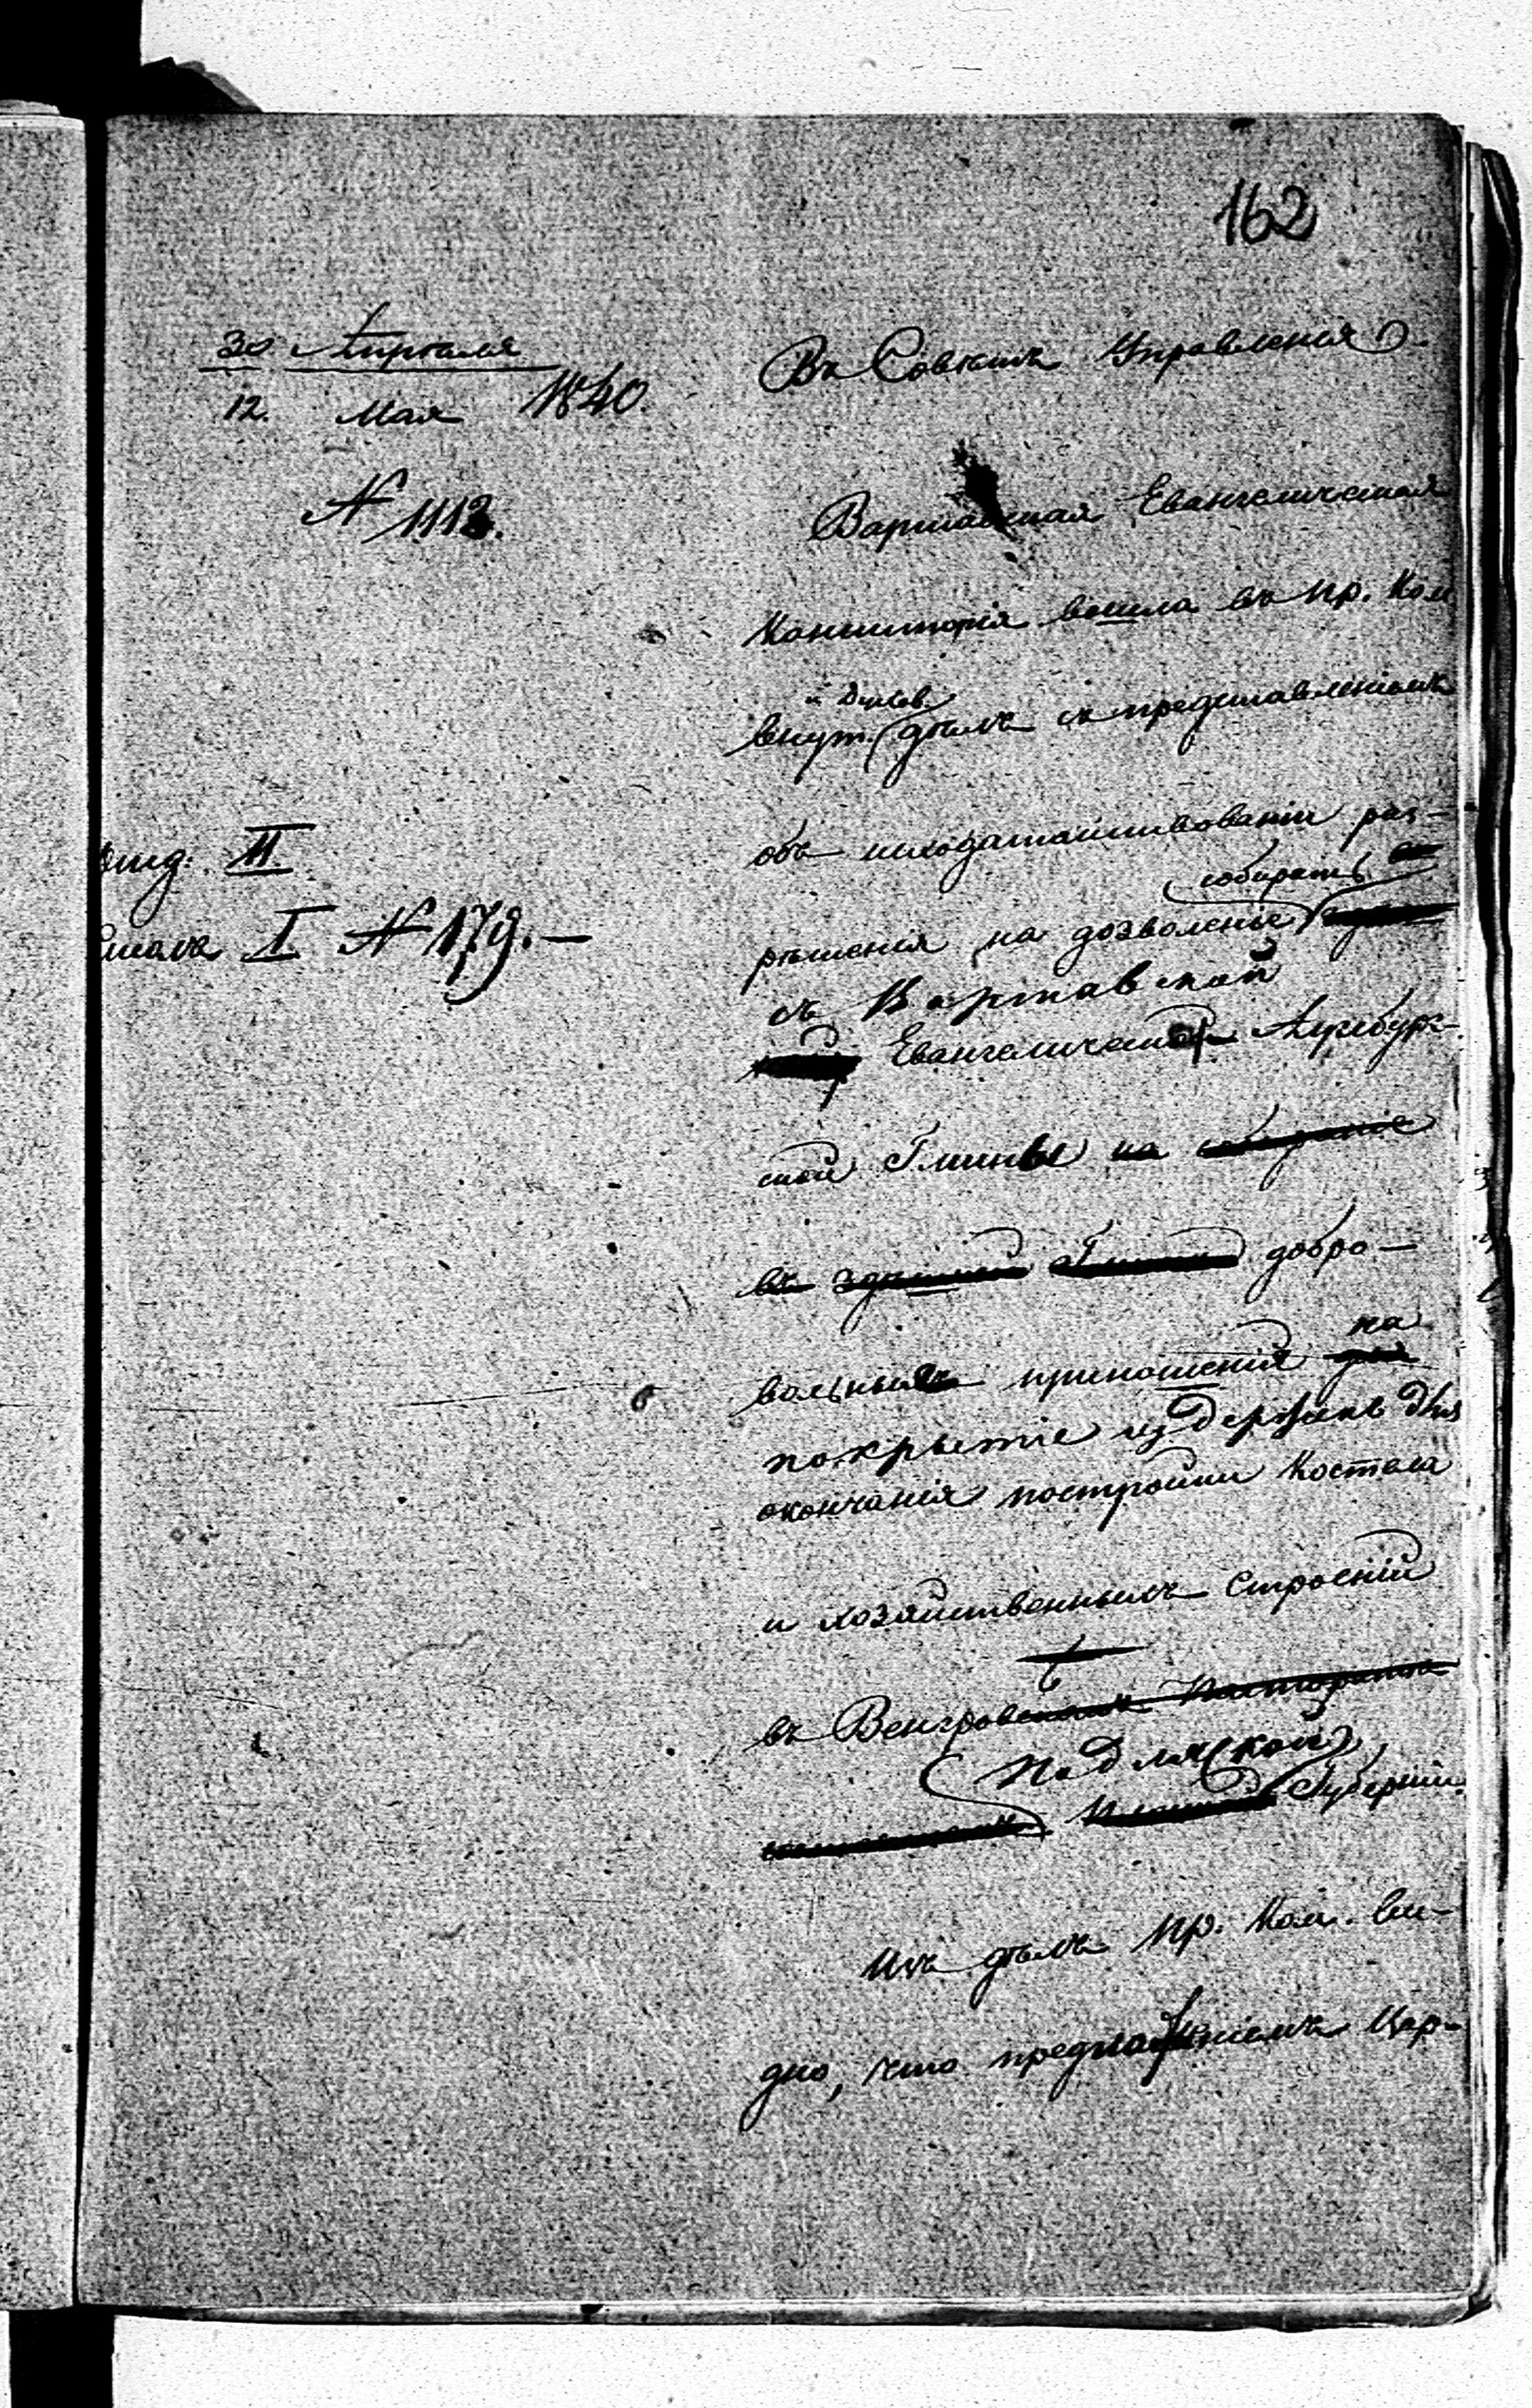 162
30 Апрѣля
12. Мая 1840.
N 1112.
Отд. II.
Столъ I N 179.—
Въ Совѣтъ Управленія
Варшавская Евангелическая
Консисторія вошла въ Пр. Ком
и Духов.
внут. дѣлъ съ представленіемъ
объ исходатайствованіи раз-
собирать
рѣшенія на дозволеніе
съ Варшавской
Евангелической Аугсбург-
ской Гмины на
въ здѣшней Гминѣ добро-
на
вольныя приношенія для
покрытіе издержекъ для
окончанія постройки Костела
и хозяйственныхъ строеній
въ Венгровскомъ Пасторатѣ
Подляской
Губерніи.
Изъ дѣлъ Пр. Ком. ви-
дно, что предложеніемъ Цар-